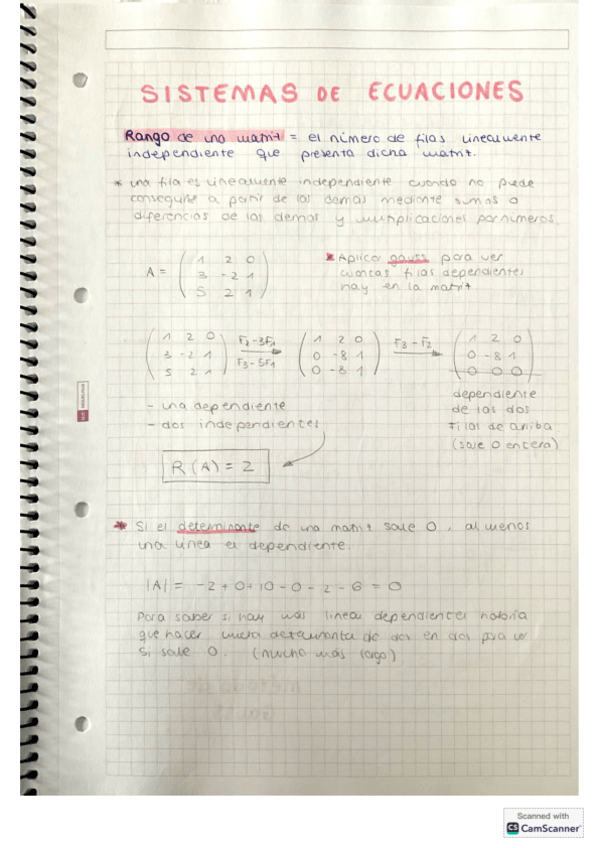 SISTEMAS DE ECUACIONES
Rango de una matriz = el número de filas linealmente
independiente que presenta dicha matriz.
* una fila es linealmente independiente cuando no puede
conseguirse a partir de las demás mediante sumas o
diferencias de las demas y multiplicaciones por números.
A = ( 1 2 0
3 -2 1
5 2 1 )
* Aplicar gauss para ver
cuantas filas dependientes
hay en la matriz
( 1 2 0
3 -2 1
5 2 1 )
F2-3F1
F3-5F1
( 1 2 0
0 -8 1
0 -8 1 )
F3-F2
( 1 2 0
0 -8 1
0 0 0 )
- una dependiente
- dos independientes
dependiente
de las dos
filas de arriba
(sale 0 entera)
R(A) = 2
* Si el determinante de una matriz sale 0, al menos
una linea es dependiente.
|A| = -2+0+10-0-2-6 = 0
Para saber si hay más lineas dependientes habría
que hacer de dos en dos para ver
si sale 0. (mucho más largo)
Scanned with
CS CamScanner